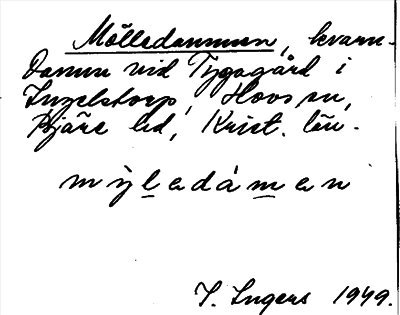 Mölledammen, kvarn-
damm vid Tygagård i
Ingelstorp, Hovs sn,
Bjäre hd, Krist. län.
mỳladámen
I. Ingers 1949.